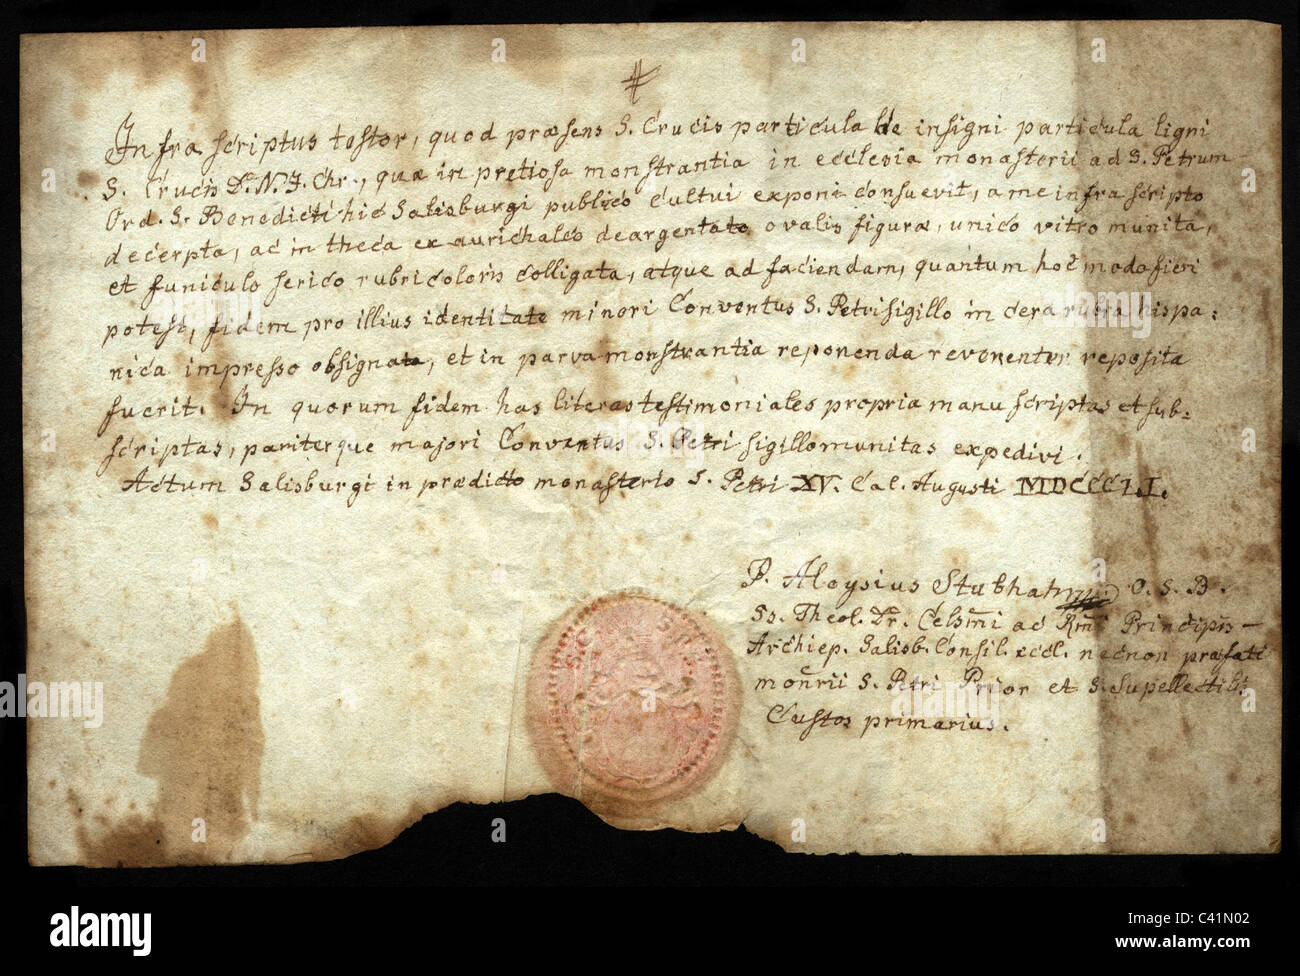 Infra scriptus testor, quod præsens S. Crucis particula de insigni particula ligni
S. Crucis D. N. J. Chr., quæ in pretiosa monstrantia in ecclesia monasterii ad S. Petrum
Ord. S. Benedicti hic Salisburgi publico cultui exponi consuevit, a me infra scripto
decerpta, ac in theca ex aurichalco deargentato ovalis figuræ, unico vitro munita,
et funiculo serico rubri coloris colligata, atque ad faciendam, quantum hoc modo fieri
potest, fidem pro illius identitate minori Conventus S. Petri sigillo in cera rubra hispa:
nica impresso obsignata, et in parva monstrantia reponenda reverenter reposita
fuerit. In quorum fidem has literas testimoniales propria manu scriptas et sub:
scriptas, pariterque majori Conventus S. Petri sigillo munitas expedivi.
Actum Salisburgi in prædicto monasterio S. Petri XV. Cal. Augusti MDCCCLI.
P. Aloysius O. S. B.
Ss. Theol. Dr. Celsmi ac Rmi Principis
Archiep. Salisb. Consil. eccl. necnon præfati
monrii S. Petri Prior et S. Supellectilis
Custos primarius.
alamy
Image ID: C41N02
www.alamy.com